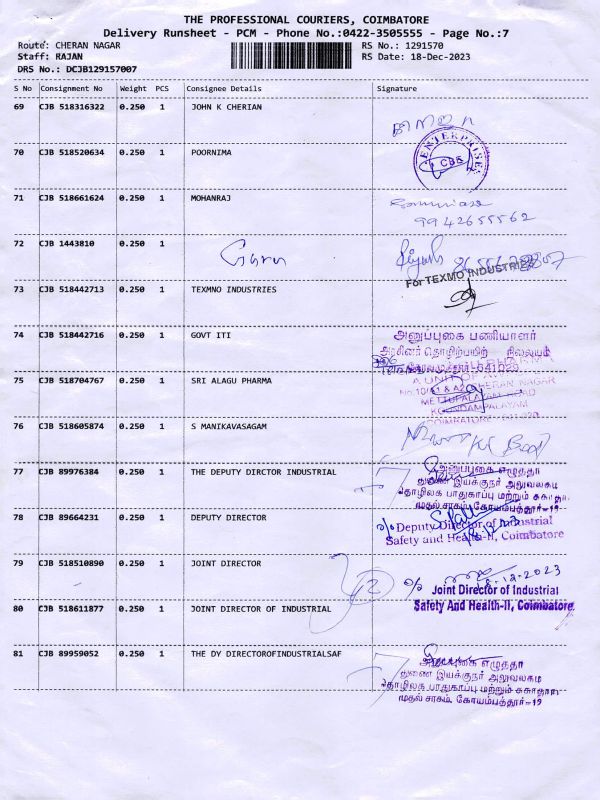 THE PROFESSIONAL COURIERS, COIMBATORE
Delivery Runsheet - PCM - Phone No.:0422-3505555 - Page No.:7
Route: CHERAN NAGAR RS No.: 1291570
Staff: RAJAN RS Date: 18-Dec-2023
DRS No.: DCJB129157007
S No Consignment No Weight PCS Consignee Details Signature
69 CJB 518316322 0.250 1 JOHN K CHERIAN
70 CJB 518520634 0.250 1 POORNIMA
ENTERPRISES
CBE
71 CJB 518661624 0.250 1 MOHANRAJ
9942655562
72 CJB 1443810 0.250 1
For TEXMO INDUSTRIES
73 CJB 518442713 0.250 1 TEXMNO INDUSTRIES
74 CJB 518442716 0.250 1 GOVT ITI
அனுப்புகை பணியாளர்
அரசினர் தொழிற்பயிற் நிலையம்
641029
75 CJB 518704767 0.250 1 SRI ALAGU PHARMA
CHERAN NAGAR
METTUPALAYAM ROAD
KOUNDAMPALAYAM
COIMBATORE
76 CJB 518605874 0.250 1 S MANIKAVASAGAM
77 CJB 89976384 0.250 1 THE DEPUTY DIRCTOR INDUSTRIAL
அனுப்புகை எழுத்தர்
துணை இயக்குநர் அலுவலகம
தொழிலக பாதுகாப்பு மற்றும் சுகாதா
முதல் சரகம், கோயம்பத்தூர்-19
78 CJB 89664231 0.250 1 DEPUTY DIRECTOR
Deputy Director of Industrial
Safety and Health-II, Coimbatore
79 CJB 518510890 0.250 1 JOINT DIRECTOR
18-12-2023
Joint Director of Industrial
80 CJB 518611877 0.250 1 JOINT DIRECTOR OF INDUSTRIAL
Safety And Health-II, Coimbatore
81 CJB 89959052 0.250 1 THE DY DIRECTOROFINDUSTRIALSAF
அனுப்புகை எழுத்தர்
துணை இயக்குநர் அலுவலகம
தொழிலக பாதுகாப்பு மற்றும் சுகாதார
முதல் சரகம், கோயம்பத்தூர்-19